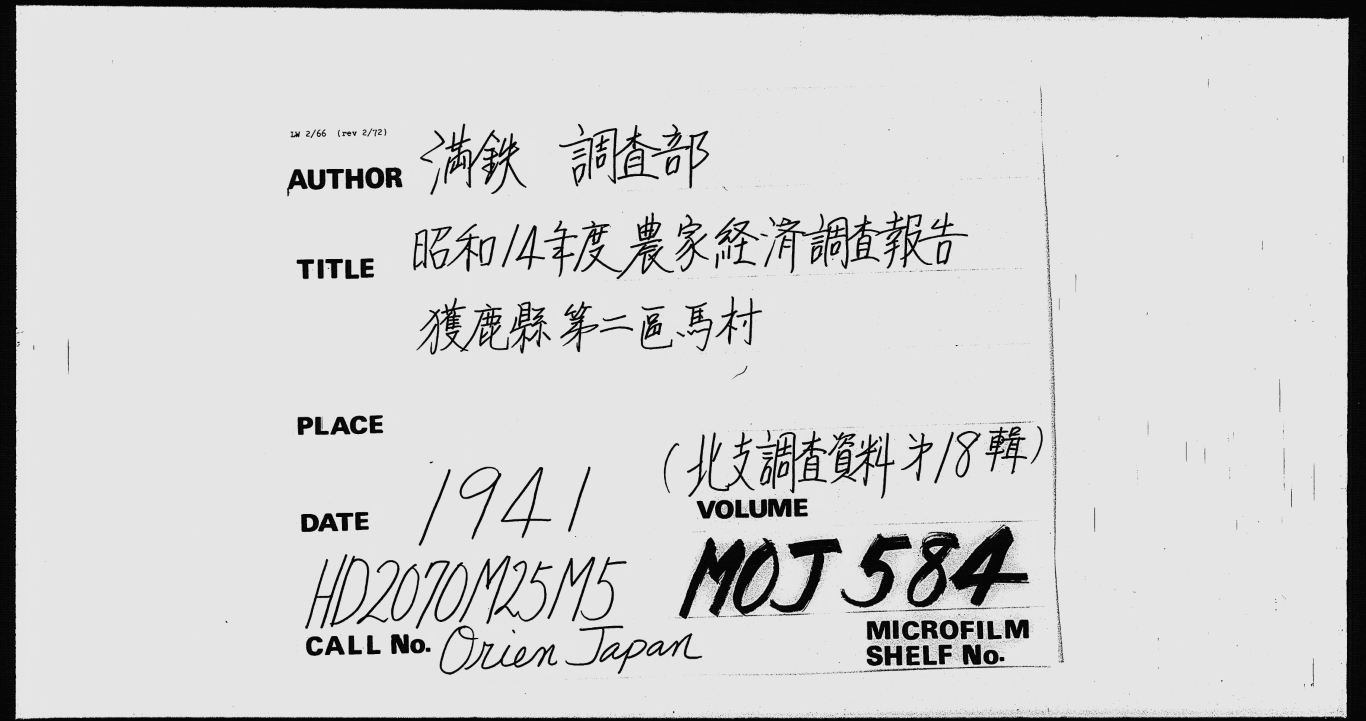 LW 2/66 (rev 2/72)
AUTHOR 満鉄 調査部
TITLE 昭和14年度農家経済調査報告
獲鹿縣第二區馬村
PLACE
(北支調査資料才18輯)
DATE 1941
VOLUME
HD2070M25M5
MOJ 584
CALL No. Orien Japan
MICROFILM
SHELF No.